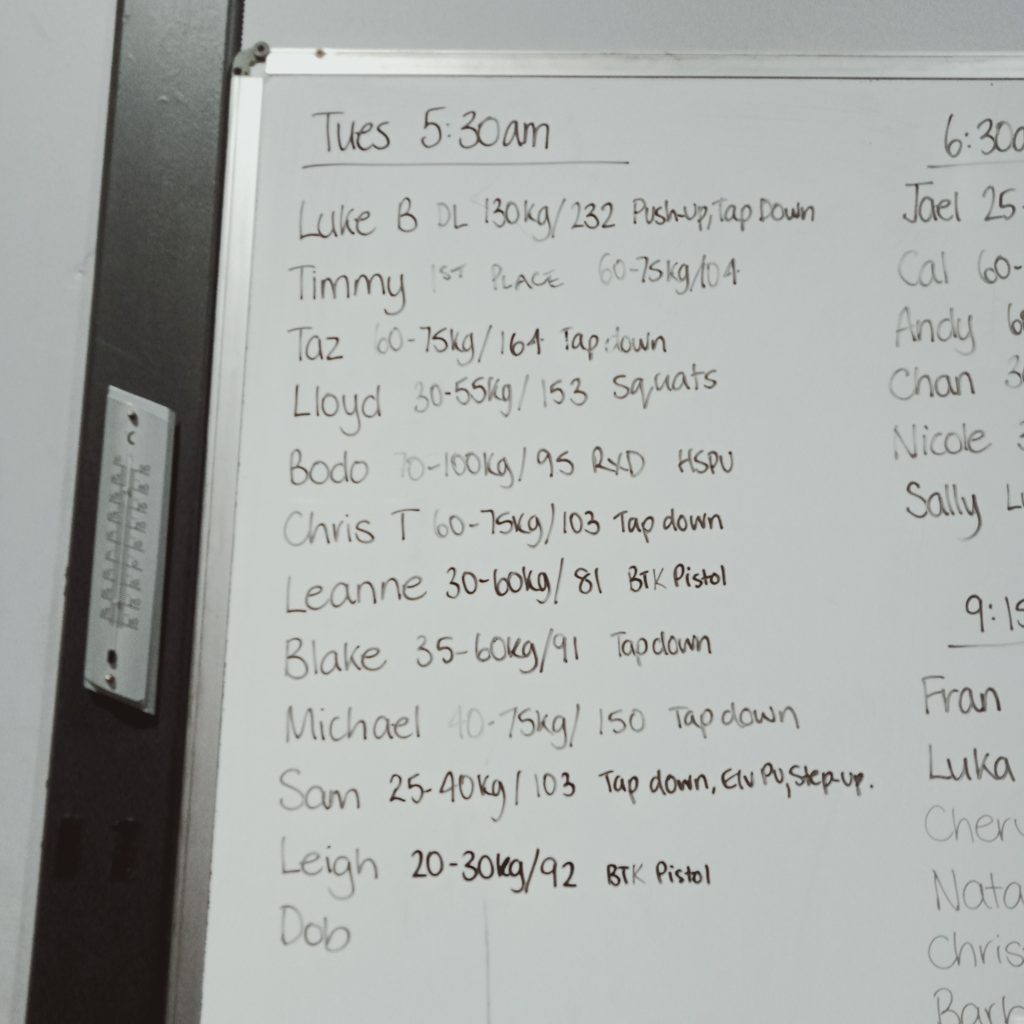 Tues 5:30am
Luke B DL 130kg/232 Push-up, Tap Down
Timmy 1ST PLACE 60-75kg/104
Taz 60-75kg/164 Tap down
Lloyd 30-55kg/153 Squats
Bodo 70-100kg/95 RXD HSPU
Chris T 60-75kg/103 Tap down
Leanne 30-60kg/81 BTK Pistol
Blake 35-60kg/91 Tapdown
Michael 40-75kg/150 Tap down
Sam 25-40kg/103 Tap down, Elv PU, Step-up.
Leigh 20-30kg/92 BTK Pistol
Dob
6:30
Jael 25-
Cal 60-
Andy
Chan
Nicole
Sally
9:15
Fran
Luka
Cher
Nata
Chris
Barb